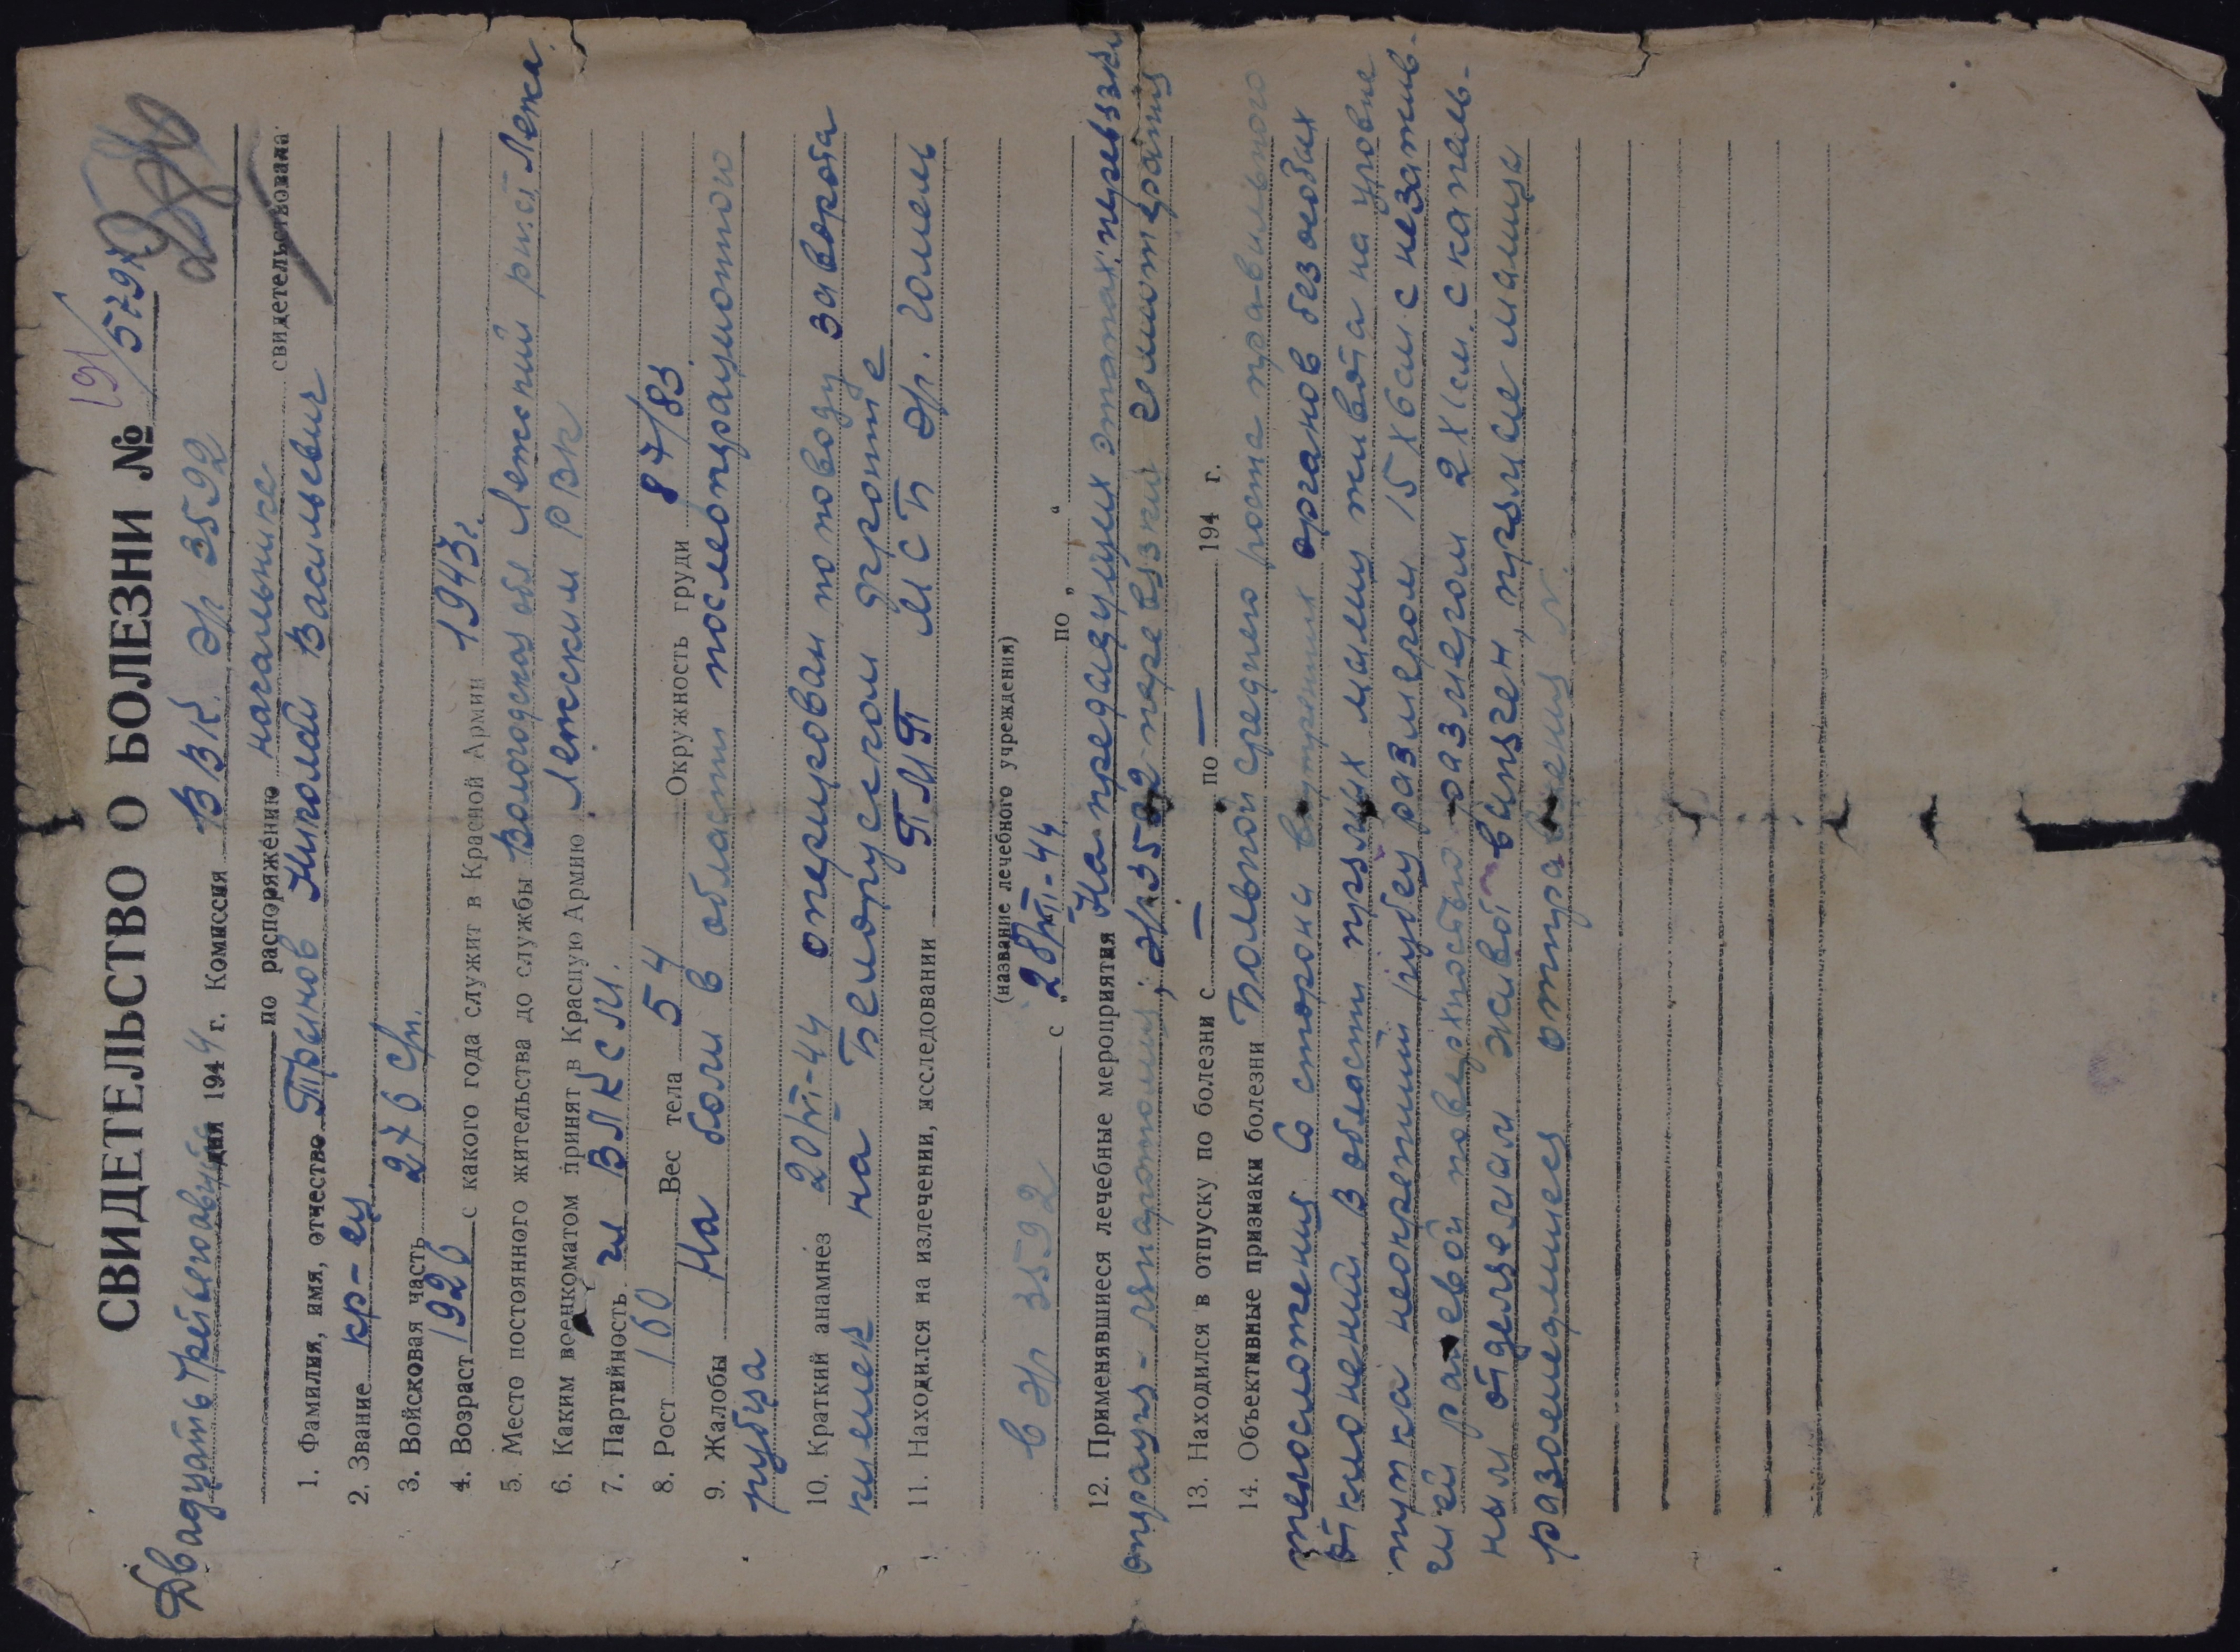 СВИДЕТЕЛЬСТВО О БОЛЕЗНИ № 191/5797
Двадцать третьего августа дня 1944 г. Комиссия ВВК. ЭГ 3592
по распоряжению начальника свидетельствовала
1. Фамилия, имя, отчество Транов Николай Васильевич
2. Звание кр-ец
3. Войсковая часть 276 с/п.
4. Возраст 1926 с какого года служит в Красной Армии 1943 г.
5. Место постоянного жительства до службы Вологодская обл Лежский р-н. ст. Лежа.
6. Каким военкоматом принят в Красную Армию Лежским РВК
7. Партийность чл ВЛКСМ.
8. Рост 160 Вес тела 54 Окружность груди 87/83.
9. Жалобы На боли в области послеоперационного
рубца
10. Краткий анамнез 20/VI-44 оперирован по поводу заворота
кишек на Белорусском фронте
11. Находился на излечении, исследовании ПМП МСБ ЭГ. Гомель
(название лечебного учреждения)
В ЭГ 3592 с „28/VII-44 по „ “
12. Применявшиеся лечебные мероприятия На предидущих этапах: перевязки
операция-лапаротомия; ЭГ 3592-перевязки гемотерапия
13. Находился в отпуску по болезни с — по — 194 г.
14. Объективные признаки болезни Больной среднего роста правильного
телосложения. Со стороны внутренних органов без особых
отклонений. В области прямых мышц живота на уровне
пупка неокрепший рубец размером 15 х 6 см. с незажив-
шей раневой поверхностью размером 2 х 1 см. с капель-
ным отделяемым живот вздут, прямые мышцы
разошедшиеся